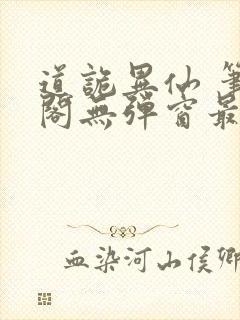 道詭異仙 筆
閣無彈窗最
血染河山侯卿